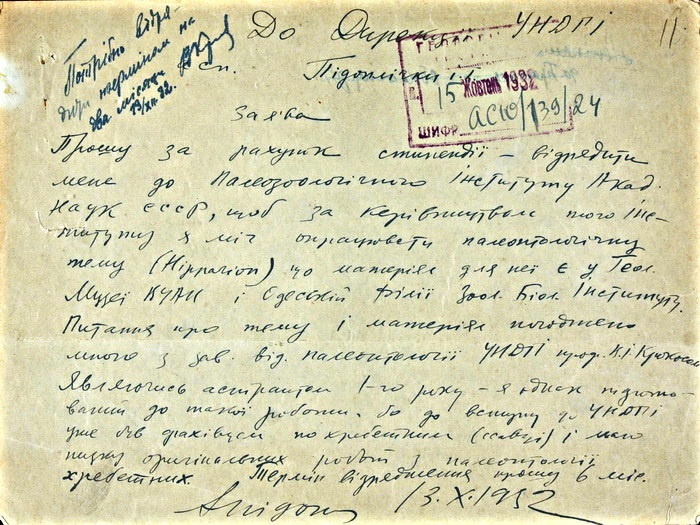 До Дирекції УНДГІ
11
Потрібно відря-
дити терміном на
два місяці
13/XII 32.
сп. Підоплічки І.Г.
15 Жовтень 1932
ШИФР АСЮ/139/24
Заява
Прошу за рахунок стипендії – відрядити
мене до Палеозоологічного Інституту Акад.
Наук СССР, щоб за керівництвом того Інс-
титуту я міг опрацювати палеонтологічну
тему (Hipparion) що матеріял для неї є у Геол.
Музеї ВУАН і Одеській Філії Зоол. Біол. Інституту.
Питання про тему і матеріял погоджено
мною з зав. від. палеонтології УНДГІ проф. В.І. Крокосом
Являючись аспірантом 1-го року – я однак підгото-
ваний до такої роботи, бо до вступу до УНДГІ
уже був фахівцем по хребетним (ссавці) і маю
низку оригінальних робіт з палеонтології
хребетних. Термін відрядження прошу 6 міс.
13.X.1932